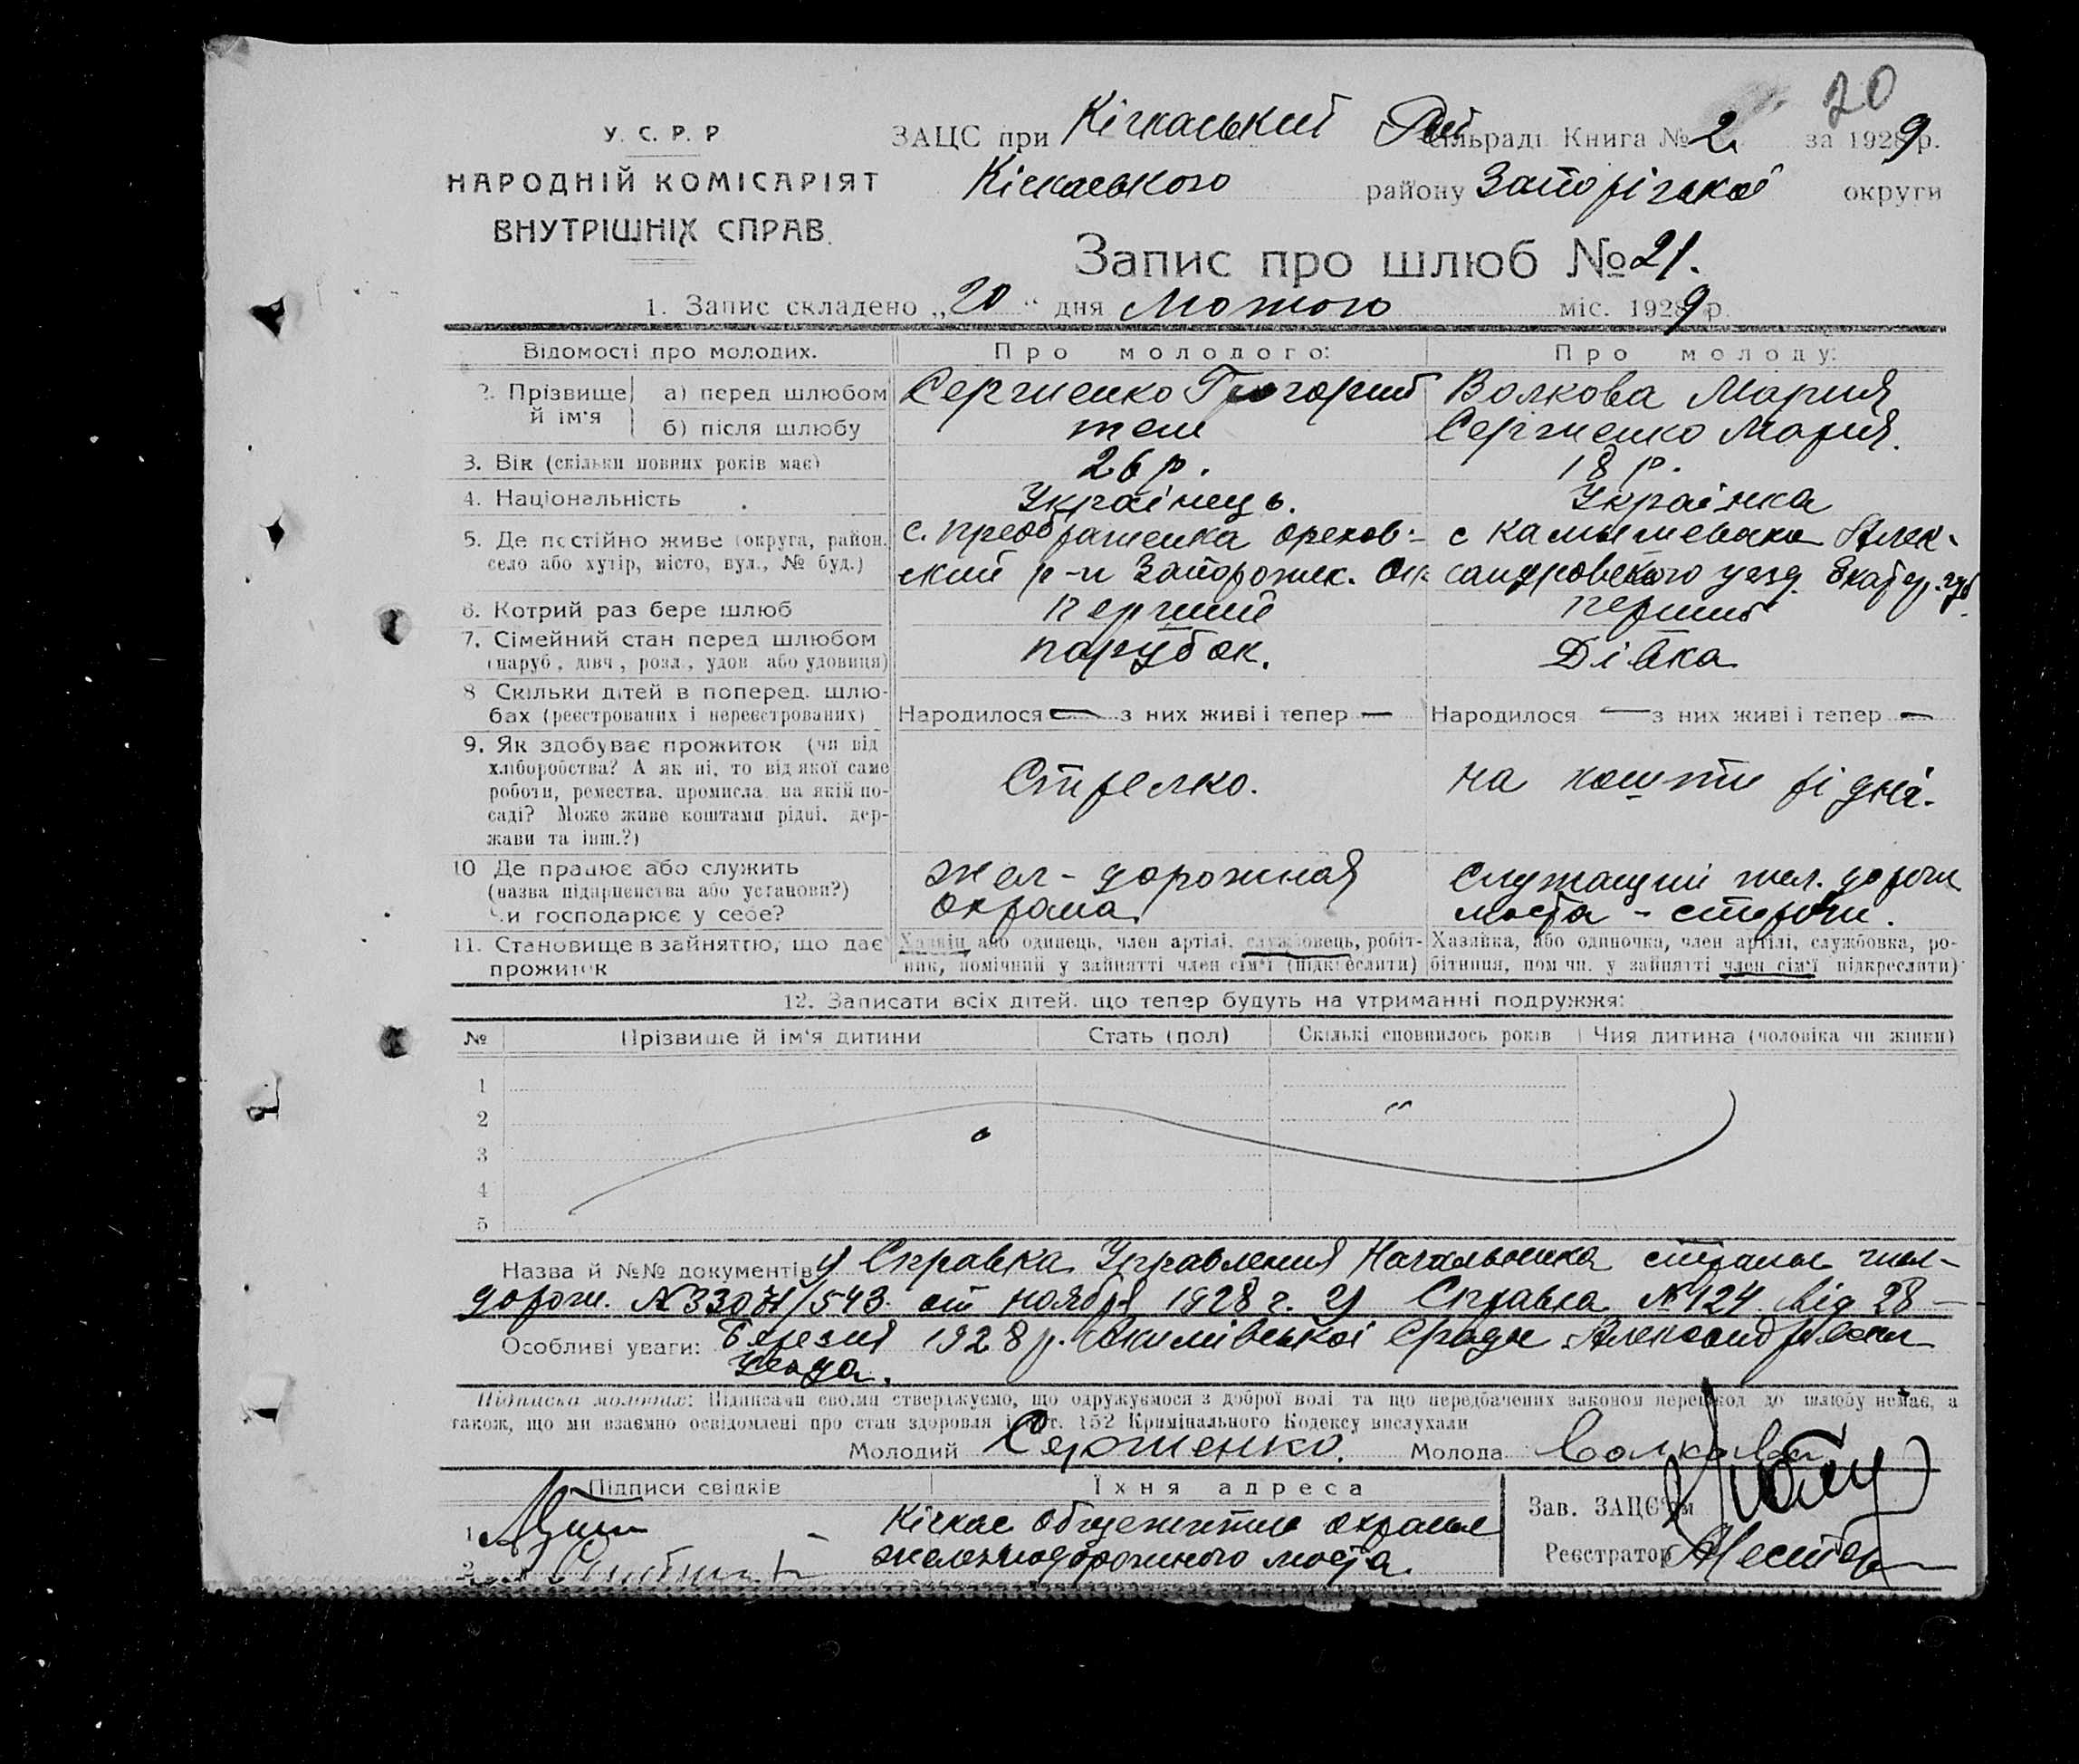 20
У. С. Р. Р
НАРОДНІЙ КОМІСАРІЯТ
ВНУТРІШНІХ СПРАВ.
ЗАЦС при Кічкаський Рай сільраді Книга № 2. за 1929 р.
Кічкаського району Запорізької округи
Запис про шлюб № 21.
1. Запис складено „20“ дня Лютого міс. 1929 р.
Відомості про молодих.
Про молодого:
Про молоду:
2. Прізвище й ім'я
а) перед шлюбом
Сергиенко Григорий
Волкова Мария
б) після шлюбу
теж
Сергиенко Мария.
3. Вік (скільки повних років має)
26 р.
18 р.
4. Національність
Українець.
Українка
5. Де постійно живе (округа, район,
село або хутір, місто, вул., № буд.)
с. Преображенка Орехов-
ский р-н Запорожск. Ок
с Камышеваха Алек-
сандровского уезд. Екатер. губ.
6. Котрий раз бере шлюб
перший
перший
7. Сімейний стан перед шлюбом
(паруб., дівч., розл., удов. або удовиця)
парубок.
Дівка
8 Скільки дітей в поперед. шлю-
бах (реєстрованих і нереєстрованих)
Народилося — з них живі і тепер —
Народилося — з них живі і тепер —
9. Як здобуває прожиток (чи від
хліборобства? А як ні, то від якої саме
роботи, ремества, промисла, на якій по-
саді? Може живе коштами рідні, дер-
жави та інш.?)
Стрелко.
на кошти рідні.
10 Де працює або служить
(назва підприємства або установи?)
Чи господарює у себе?
жел-дорожная
охрана
Служащий жел. дорожн
моста - сторож.
11. Становище в зайняттю, що дає
прожиток
Хазяїн або одинець, член артілі, службовець, робіт-
ник, помічний у зайнятті член сім'ї (підкреслити)
Хазяйка, або одиночка, член артілі, службовка, ро-
бітниця, помічн. у зайнятті член сім'ї підкреслити)
12. Записати всіх дітей, що тепер будуть на утриманні подружжя:
№
Прізвище й ім'я дитини
Стать (пол)
Скількі сповнилось років
Чия дитина (чоловіка чи жінки)
1
2
3
4
5
Назва й №№ документів 1) Справка Управления Начальника охраны жел-
дорож. № 33071/543 от ноября 1928 г. 2) Справка № 124 від 28 —
Особливі уваги: Березня 1928 р.
уезда.
Підписка молодих: Підписами своїми стверджуємо, що одружуємося з доброї волі та що передбачених законом перешкод до шлюбу немає, а
також, що ми взаємно освідомлені про стан здоровля і арт. 152 Кримінального Кодексу вислухали
Молодий Сергиенко. Молода Волкова
Підписи свідків
Їхня адреса
1
2
Кічкас общежитие охраны
железнодорожного моста.
Зав. ЗАЦС'ом
Реєстратор